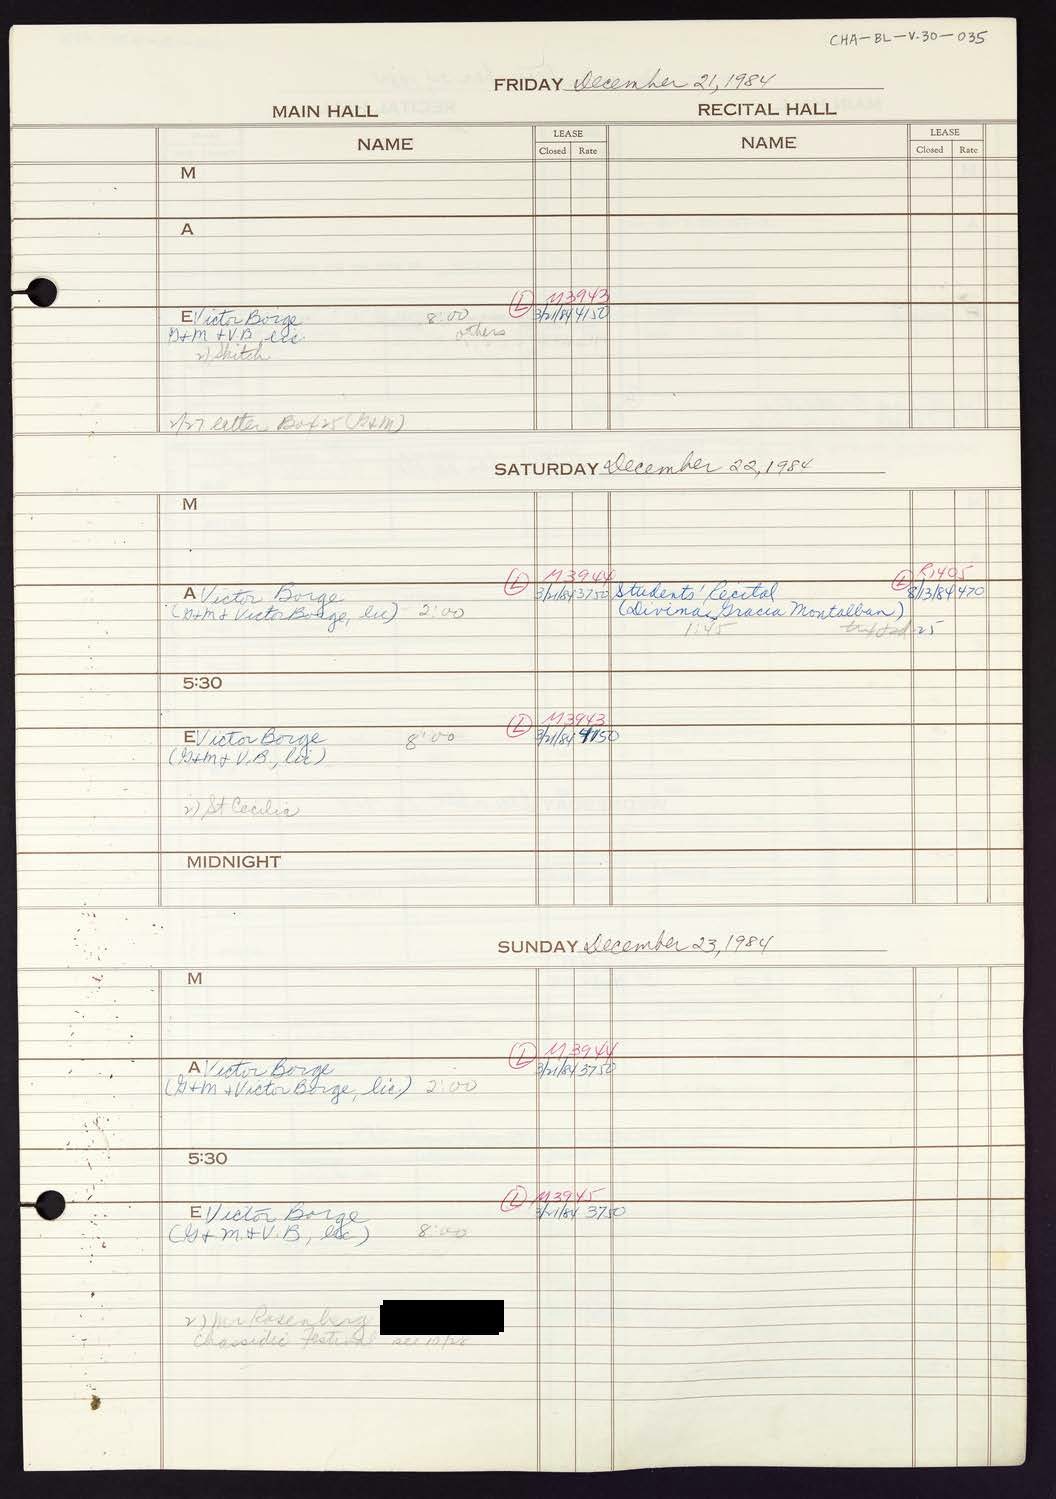 CHA-BL-V.30-035
FRIDAY December 21, 1984
MAIN HALL RECITAL HALL
NAME LEASE NAME LEASE
Closed Rate Closed Rate
M
A
(L) M3943
E Victor Borge 8:00 3/21/84 4150
G+M + V B, lic. others
2) Skitch
2/27 letter Box 25 (G+M)
SATURDAY December 22, 1984
M
(L) M3944 (L) R1405
A Victor Borge 3/21/84 3750 Students' Recital 8/3/84 470
(G+M + Victor Borge, lic) 2:00 (Divina Gracia Montalban)
1:45 25
5:30
(L) M3943
E Victor Borge 8:00 3/21/84 4150
(G+M + V.B., lic)
2) St Cecilia
MIDNIGHT
SUNDAY December 23, 1984
M
(L) M3944
A Victor Borge 3/21/84 3750
(G+M + Victor Borge, lic) 2:00
5:30
(L) M3945
E Victor Borge 3/21/84 3750
(G+M. + V.B., lic) 8:00
2) Mr Rosenberg
Chassidic Festival see 10/28